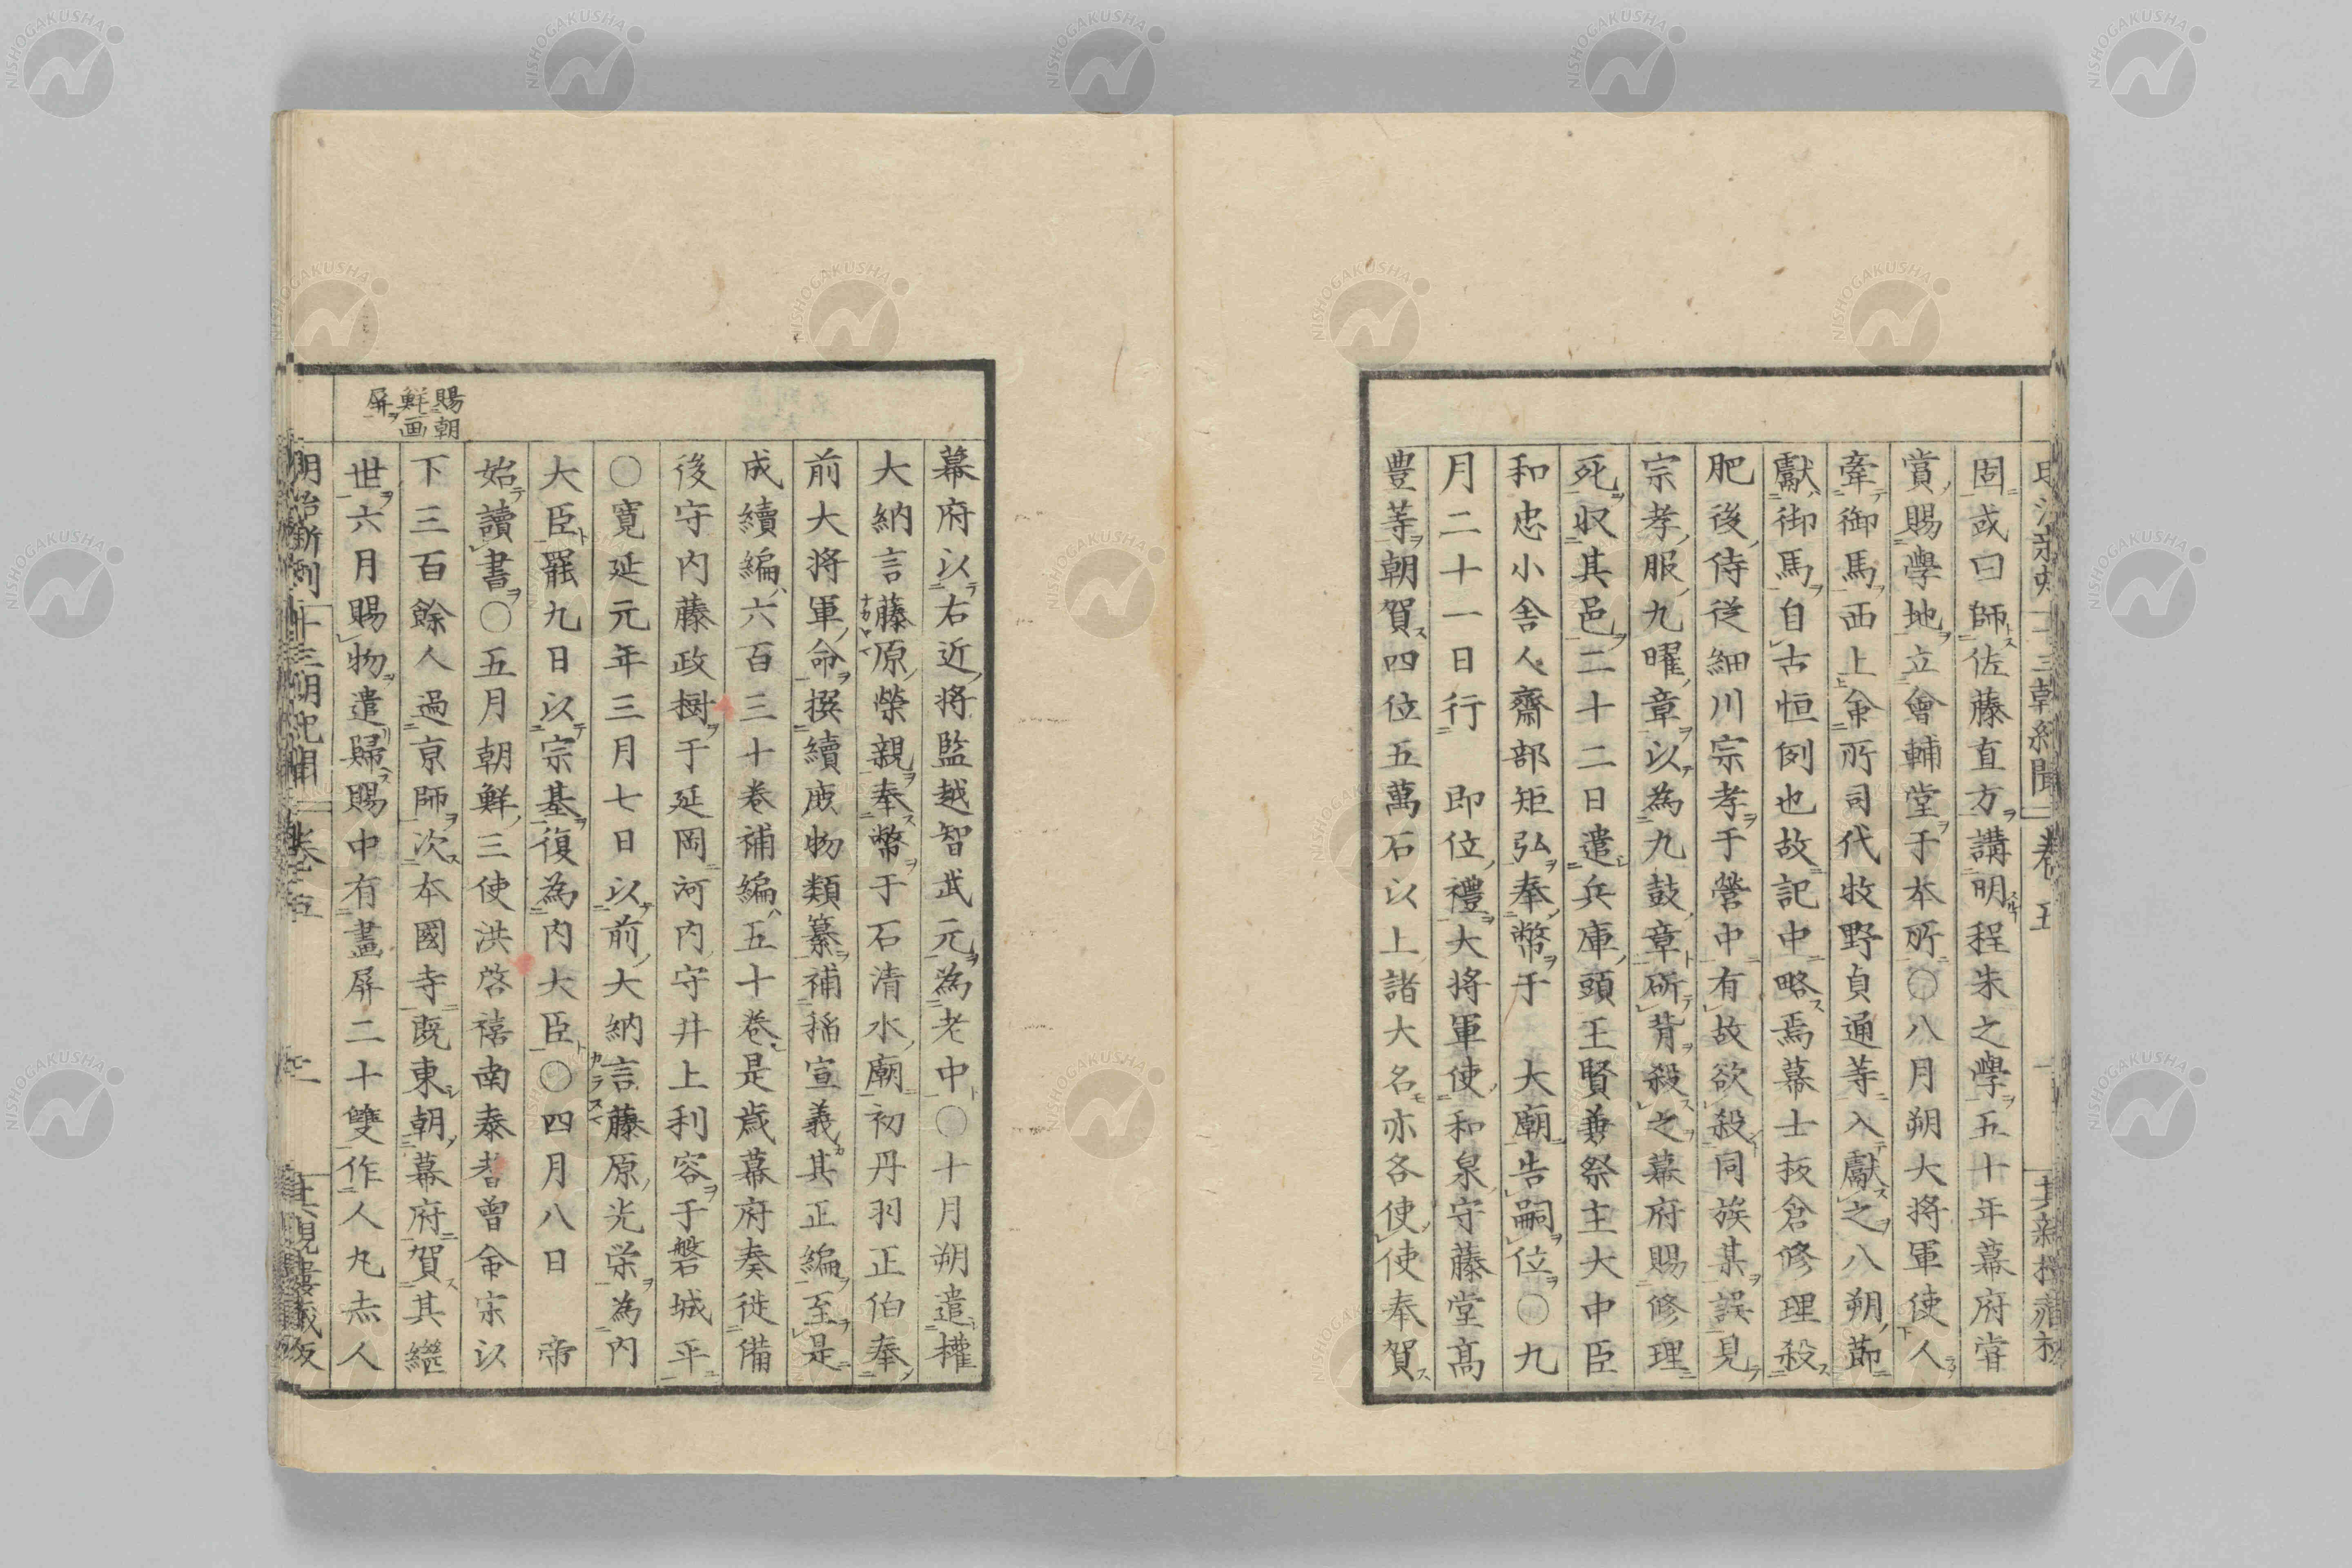 固或曰師佐藤直方講明程朱之學五十年幕府嘗
賞賜學地立會輔堂于本所〇八月朔大將軍使人
牽御馬西上命所司代牧野貞通等入獻之八朔節
獻御馬自古恒例也故記中略焉幕士板倉修理殺
肥後侍從細川宗孝于營中有故欲殺同族某誤見
宗孝服九曜章以為九鼓章斫背殺之幕府賜修理
死収其邑二十二日遣兵庫頭王賢兼祭主大中臣
和忠小舍人齋部矩弘奉幣于 大廟告嗣位〇九
月二十一日行 即位禮大將軍使和泉守藤堂高
豊等朝賀四位五萬石以上諸大名亦各使使奉賀
幕府以右近將監越智武元為老中〇十月朔遣權
大納言藤原榮親奉幣于石清水廟初丹羽正伯奉
前大將軍命撰續庶物類纂補稲宣義其正編至是
成續編六百三十卷補編五十卷是歲幕府奏徙備
後守内藤政樹于延岡河内守井上利容于磐城平
〇寛延元年三月七日以前大納言藤原光栄為内
大臣罷九日以宗基復為内大臣〇四月八日 帝
始讀書〇五月朝鮮三使洪啓禧南泰耆曾命宗以
下三百餘人過京師次本國寺既東朝幕府賀其繼
世六月賜物遣歸賜中有畫屏二十雙作人凡赤人
賜朝
鮮画
屏
明治新刻 十三朝紀聞 卷五